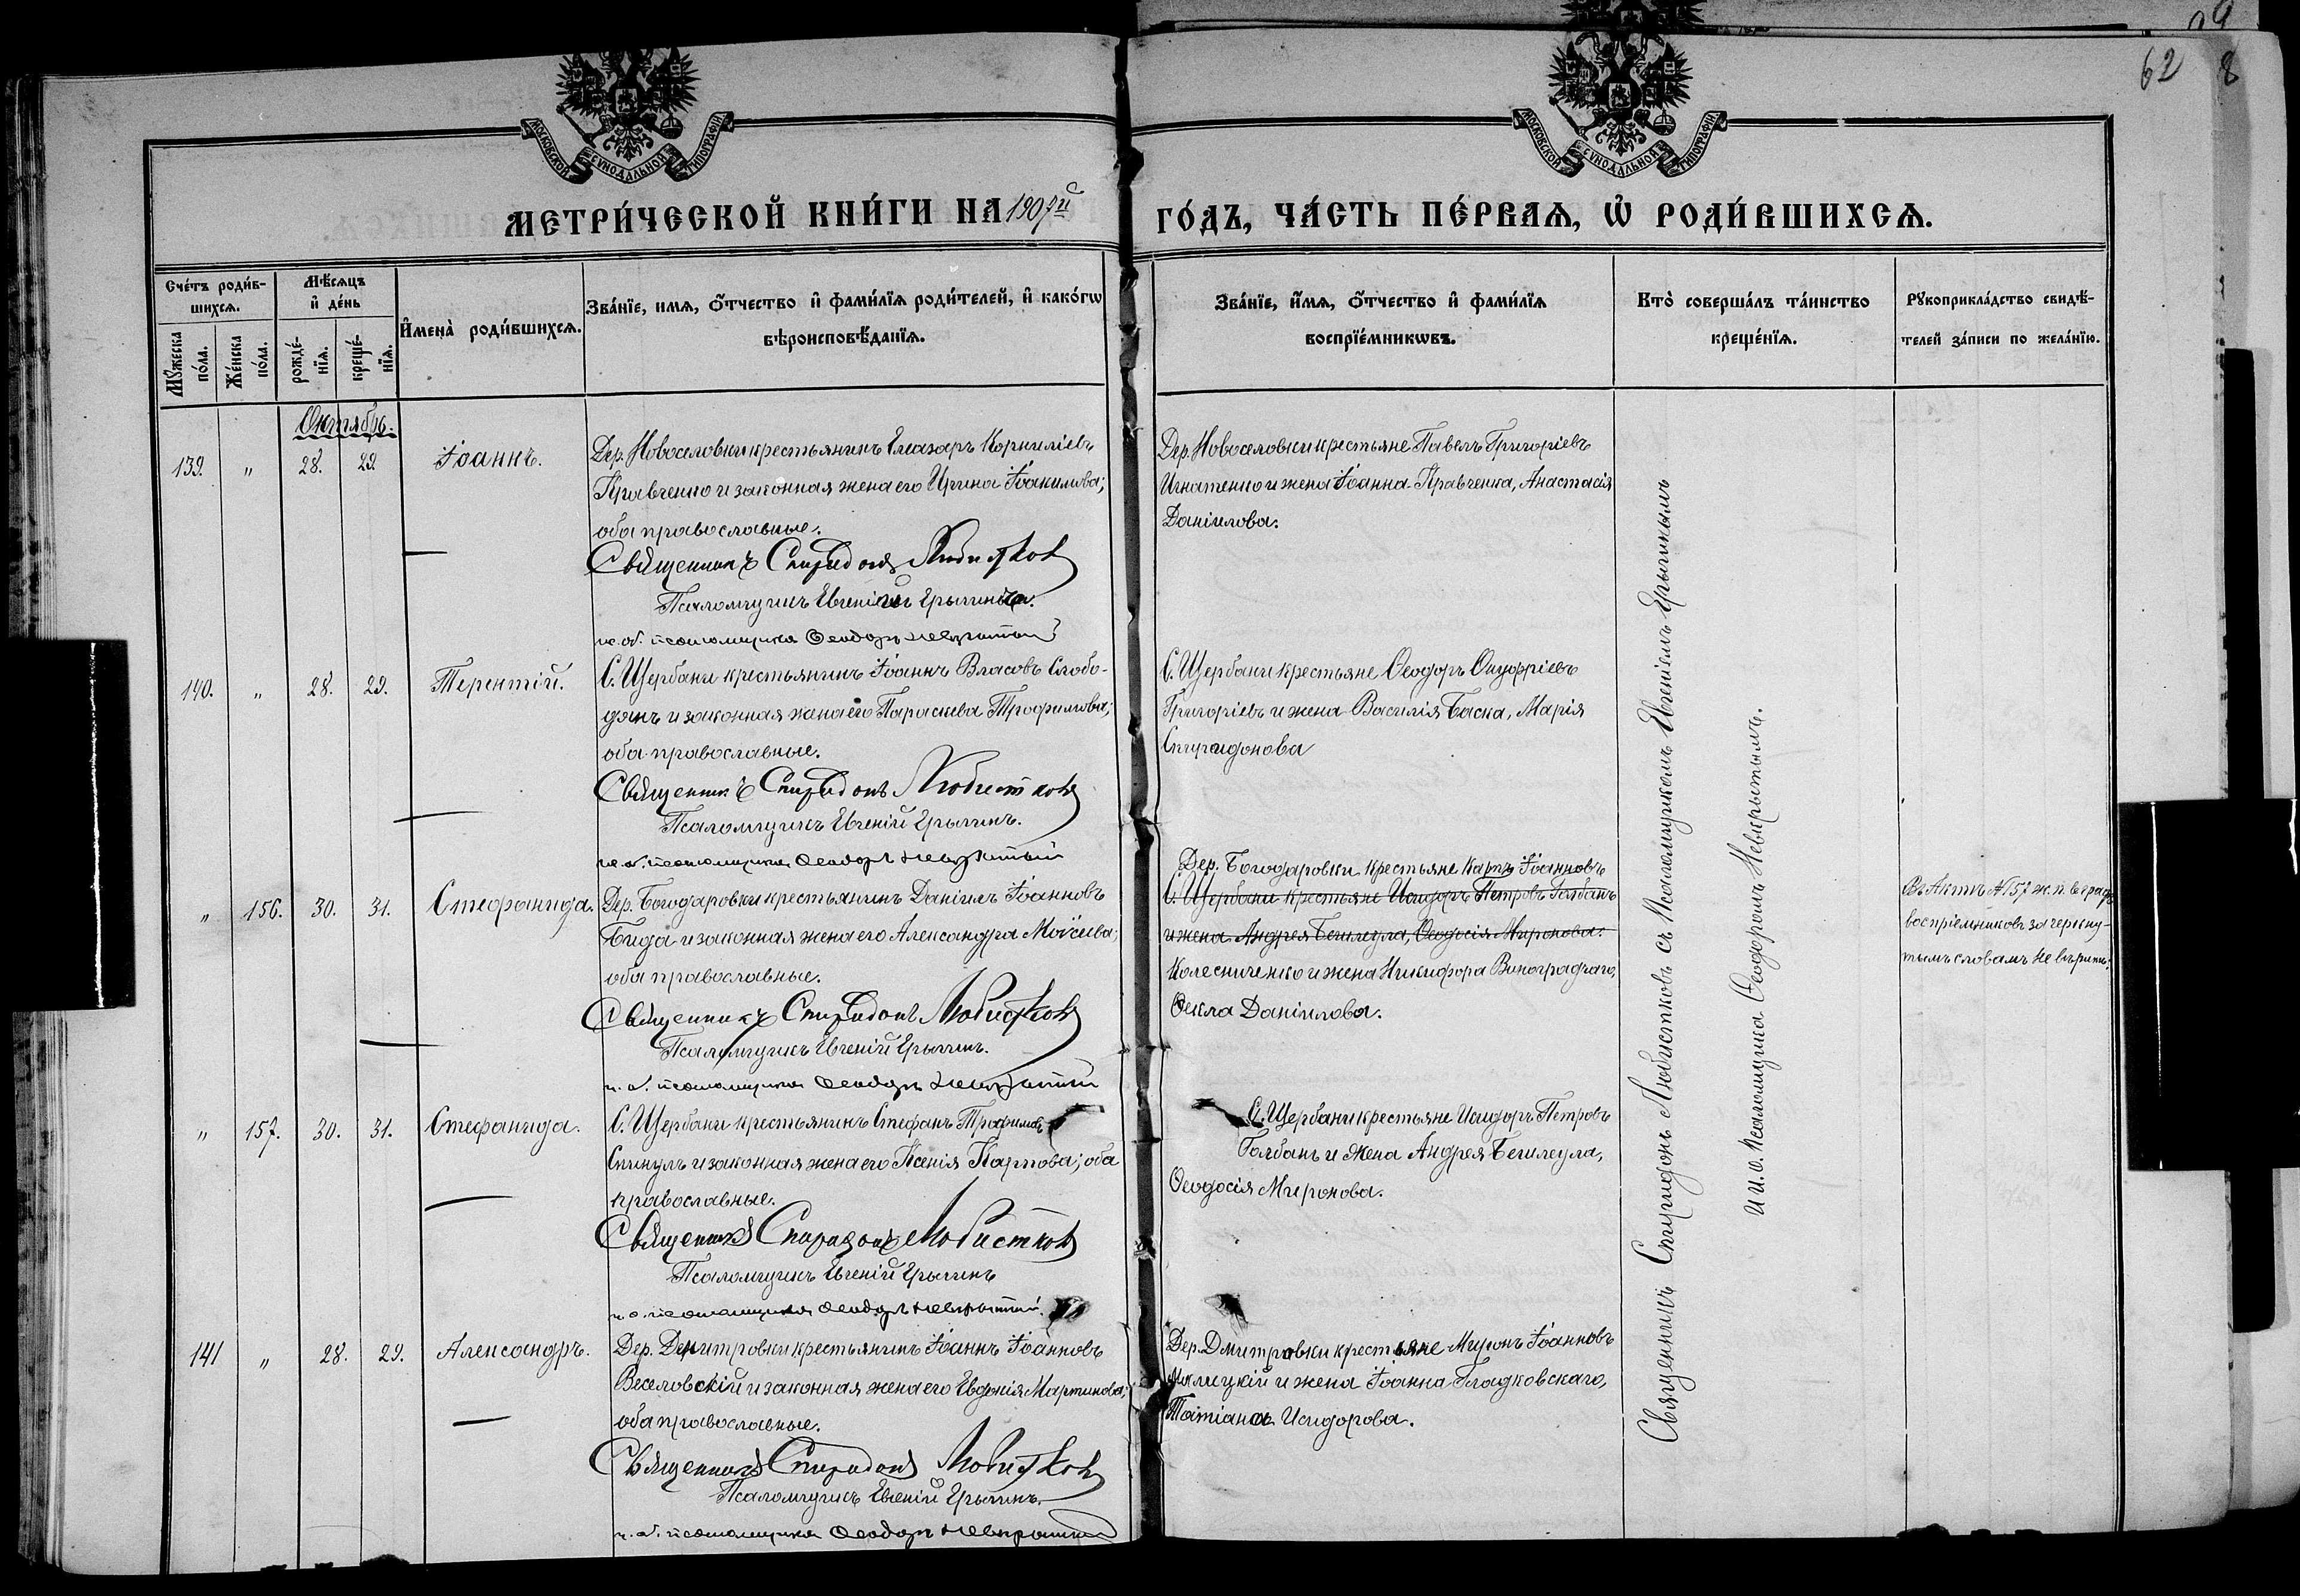 МОСКОВСКОЙ СѴНОДАЛЬНОЙ ТИПОГРАФІИ
МОСКОВСКОЙ СѴНОДАЛЬНОЙ ТИПОГРАФІИ
62
МЕТРИ́ЧЕСКОЙ КНИ́ГИ НА 1907й ГО́ДЪ, ЧА́СТЬ ПЕ́РВАѦ, Ѡ҆ РОДИ́ВШИХСѦ.
Сче́тъ роди́в-
шихсѧ.
Мѣ́сѧцъ
и҆ де́нь
И҆мена̀ роди́вшихсѧ.
Зва́нїе, имѧ, ѻ҆́тчество и҆ фами́лїѧ роди́телей, и҆ како́гѡ
вѣроисповѣ́данїѧ.
Мꙋ́жеска
по́ла.
Же́нска
по́ла.
рожде́-
нїѧ.
креще́-
нїѧ.
Зва́нїе, и҆́мѧ, ѻ҆́тчество и҆ фами́лїѧ
воспрїе́мникѡвъ.
Кто̀ соверша́лъ та́инство
креще́нїѧ.
Рꙋкоприкла́дство свидѣ́-
телей за́писи по жела́нїю.
Октябрь.
139. " 28. 29. Іоаннъ.
Дер. Новоселовки крестьянинъ Елеазаръ Корниліевъ
Кравченко и законная жена его Ирина Іоакимова;
оба православные.
Священникъ Спиридонъ Любистковъ
Псаломщикъ Евгеній Ерыгинъ.
и. об. псаломщика Ѳеодоръ Невкрытый
Дер. Новоселовки крестьяне Павелъ Григоріевъ
Игнатенко и жена Іоанна Кравченка, Анастасія
Даніилова.
140. " 28. 29. Терентій.
С. Щербани крестьянинъ Іоаннъ Власовъ Слобо-
дянъ и законная жена его Параскева Трофимова;
оба православные.
Священникъ Спиридонъ Любистковъ
Псаломщикъ Евгеній Ерыгинъ.
и. об. псаломщика Ѳеодоръ Невкрытый
С. Щербани крестьяне Ѳеодоръ Онуфріевъ
Григоріевъ и жена Василія Баска, Марія
Спиридонова
" 156. 30. 31. Стефанида.
Дер. Богодаровки крестьянинъ Даніилъ Іоанновъ
Бида и законная жена его Александра Моѵсеева;
оба православные.
Священникъ Спиридонъ Любистковъ
Псаломщикъ Евгеній Ерыгинъ.
и. об. псаломщика Ѳеодоръ Невкрытый
Дер. Богодаровки крестьяне Карпъ Іоанновъ
С. Щербани крестьяне Исидоръ Петровъ Голбанъ
и жена Андрея Бешлеула, Ѳеодосія Миронова.
Колесниченко и жена Никифора Виноградчаго,
Ѳекла Даніилова.
Въ Актѣ № 157 ж. п. въ графѣ
воспріемниковъ зачеркну-
тымъ словамъ не вѣрить.
" 157. 30. 31. Стефанида.
С. Щербани крестьянинъ Стефанъ Трофимовъ
Спинулъ и законная жена его Ксенія Карпова; оба
православные.
Священникъ Спиридонъ Любистковъ
Псаломщикъ Евгеній Ерыгинъ
и. о. псаломщика Ѳеодоръ Невкрытый.
С. Щербани крестьяне Исидоръ Петровъ
Голбанъ и жена Андрея Бешлеула,
Ѳеодосія Миронова.
141 " 28. 29. Александръ.
Дер. Дмитровки крестьянинъ Іоаннъ Іоанновъ
Веселовскій и законная жена его Евдокія Мартинова;
оба православные.
Священникъ Спиридонъ Любистковъ
Псаломщикъ Евгеній Ерыгинъ.
и. об. псаломщика Ѳеодоръ Невкрытый
Дер. Дмитровки крестьяне Миронъ Іоанновъ
Малицкій и жена Іоанна Гладковскаго,
Татіана Исидорова.
Священникъ Спиридонъ Любистковъ съ Псаломщикомъ Евгеніемъ Ерыгинымъ
и и. о. Псаломщика Ѳеодоромъ Невкрытымъ.